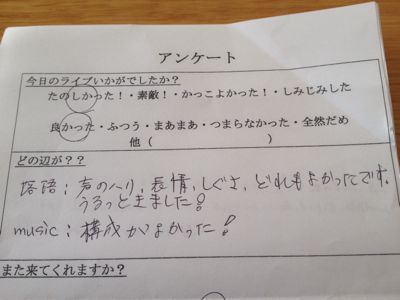 アンケート
今日のライブいかがでしたか？
たのしかった！・素敵！・かっこよかった！・しみじみした
良かった・ふつう・まあまあ・つまらなかった・全然だめ
他（　　　　　　　　　）
どの辺が？？
落語：声のハリ、表情、しぐさ、どれもよかったです。
うるっときました！
music：構成がよかった！
また来てくれますか？